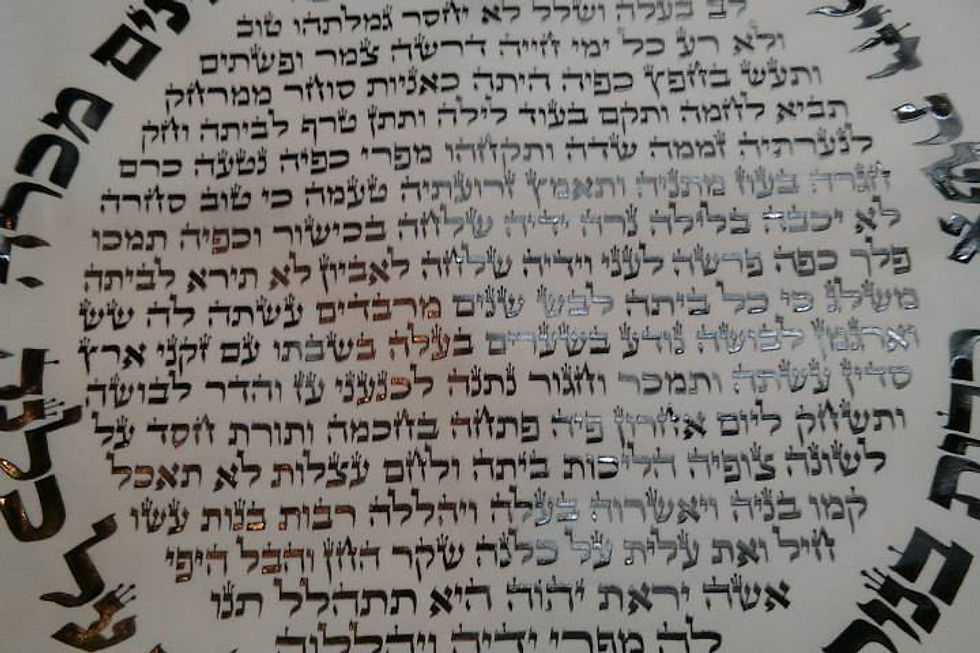 לב בעלה ושלל לא יחסר גמלתהו טוב
ולא רע כל ימי חייה דרשה צמר ופשתים
ותעש בחפץ כפיה היתה כאניות סוחר ממרחק
תביא לחמה ותקם בעוד לילה ותתן טרף לביתה וחק
לנערתיה זממה שדה ותקחהו מפרי כפיה נטעה כרם
חגרה בעוז מתניה ותאמץ זרועתיה טעמה כי טוב סחרה
לא יכבה בלילה נרה ידיה שלחה בכישור וכפיה תמכו
פלך כפה פרשה לעני וידיה שלחה לאביון לא תירא לביתה
משלג כי כל ביתה לבש שנים מרבדים עשתה לה שש
וארגמן לבושה נודע בשערים בעלה בשבתו עם זקני ארץ
סדין עשתה ותמכר וחגור נתנה לכנעני עז והדר לבושה
ותשחק ליום אחרון פיה פתחה בחכמה ותורת חסד על
לשונה צופיה הליכות ביתה ולחם עצלות לא תאכל
קמו בניה ויאשרוה בעלה ויהללה רבות בנות עשו
חיל ואת עלית על כלנה שקר החן והבל היפי
אשה יראת יהוה היא תתהלל תנו
לה מפרי ידיה ויהללוה
מכרה
בנות